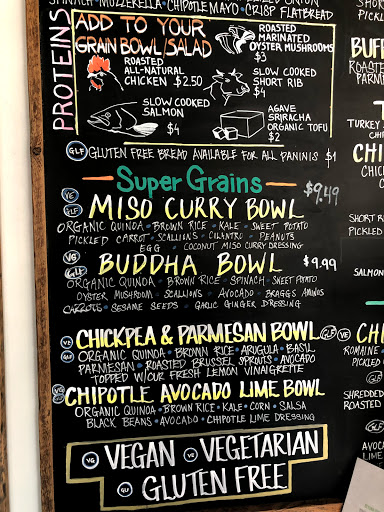 CHIPOTLE MAYO • CRISP FLATBREAD
PROTEINS
ADD TO YOUR
GRAIN BOWL/SALAD
ROASTED
ALL-NATURAL
CHICKEN $2.50
ROASTED
MARINATED
OYSTER MUSHROOMS
$3
SLOW COOKED
SHORT RIB
$4
SLOW COOKED
SALMON
$4
AGAVE
SRIRACHA
ORGANIC TOFU
$2
GLF GLUTEN FREE BREAD AVAILABLE FOR ALL PANINIS $1
Super Grains
VE
GLF MISO CURRY BOWL $9.49
ORGANIC QUINOA • BROWN RICE • KALE • SWEET POTATO
PICKLED CARROT • SCALLIONS • CILANTRO • PEANUTS
EGG • COCONUT MISO CURRY DRESSING
VG
GLF BUDDHA BOWL $9.99
ORGANIC QUINOA • BROWN RICE • SPINACH • SWEET POTATO
OYSTER MUSHROOM • SCALLIONS • AVOCADO • BRAGGS AMINOS
CARROTS • SESAME SEEDS • GARLIC GINGER DRESSING
VE CHICKPEA & PARMESAN BOWL GLF VE
ORGANIC QUINOA • BROWN RICE • ARUGULA • BASIL
PARMESAN • ROASTED BRUSSEL SPROUTS • AVOCADO
TOPPED W/OUR FRESH LEMON VINAIGRETTE
VG CHIPOTLE AVOCADO LIME BOWL
ORGANIC QUINOA • BROWN RICE • KALE • CORN • SALSA
BLACK BEANS • AVOCADO • CHIPOTLE LIME DRESSING
VG VEGAN VE VEGETARIAN
GLF GLUTEN FREE
SHORT
PICKLE
BUFF
ROASTE
PARM
TURKEY
CHI
CHIC
SHORT R
PICKLED
SALMON
CH
ROMAINE
PICKLED
SHREDDED
ROASTED
AVOC
LIME